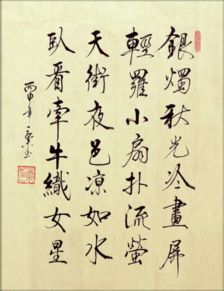 銀燭秋光冷畫屏
輕羅小扇扑流螢
天街夜色涼如水
臥看牽牛織女星
丙申年